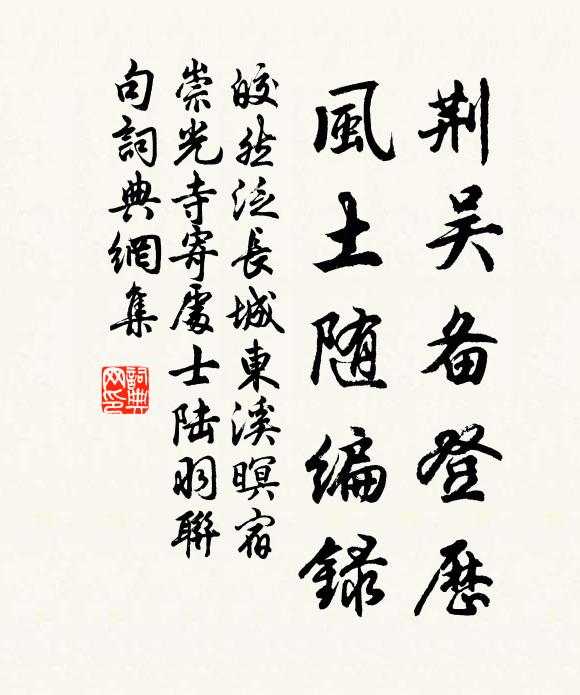 荆吴备登歷
風土随编録
皎然泛長城東溪暝宿
崇光寺寄處士陆羽聯
句詞典網集
詞典网印